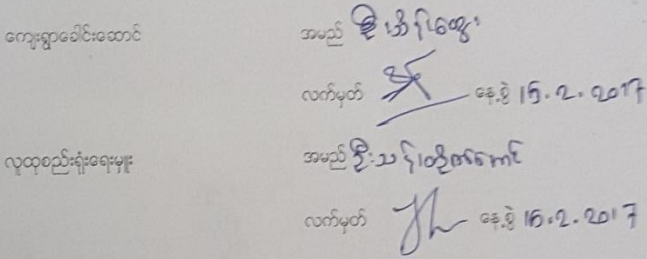 ကျေးရွာခေါင်းဆောင် အမည် ဦး
လက်မှတ် နေ့စွဲ 15.2.2017
လူထုစည်းရုံးရေးမှူး အမည် ဦးသန်
လက်မှတ် နေ့စွဲ 15.2.2017